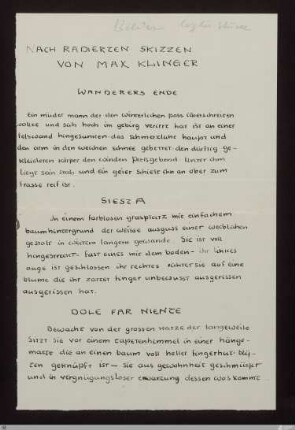 NACH RADIERTEN SKIZZEN
VON MAX KLINGER
WANDERERS ENDE
Ein müder mann der den winterlichen pass überschreiten
wollte und sich hoch im gebirg verirrt hat ist an einer
felswand hingesunken das schmerzliche haupt und
den arm in den weichen schnee gebettet den dürftig ge-
kleideten körper den winden preisgebend. Unter dem
liegt sein stab und ein geier schielt ihn an ober zum
frasse reif ist.
SIESTA
In einem farblosen grasplatz mit einfachem
baumhintergrund der weisse ausguss einer weiblichen
gestalt in weitem langem gewande. Sie ist voll
hingestreckt. Fast eines mit dem boden – ihr linkes
auge ist geschlossen ihr rechtes stiert auf eine
blume die ihr zarter finger unbewusst ausgerissen
ausgerissen hat.
DOLE FAR NIENTE
Bewacht von der grossen katze der langeweile
sitzt sie vor einem tapetenhimmel in einer hänge-
matte die an einen baum voll heller fingerhut-blü-
ten geknüpft ist – sie aus gewohnheit geschmückt
und in vergnügungsloser erwartung dessen was kommt